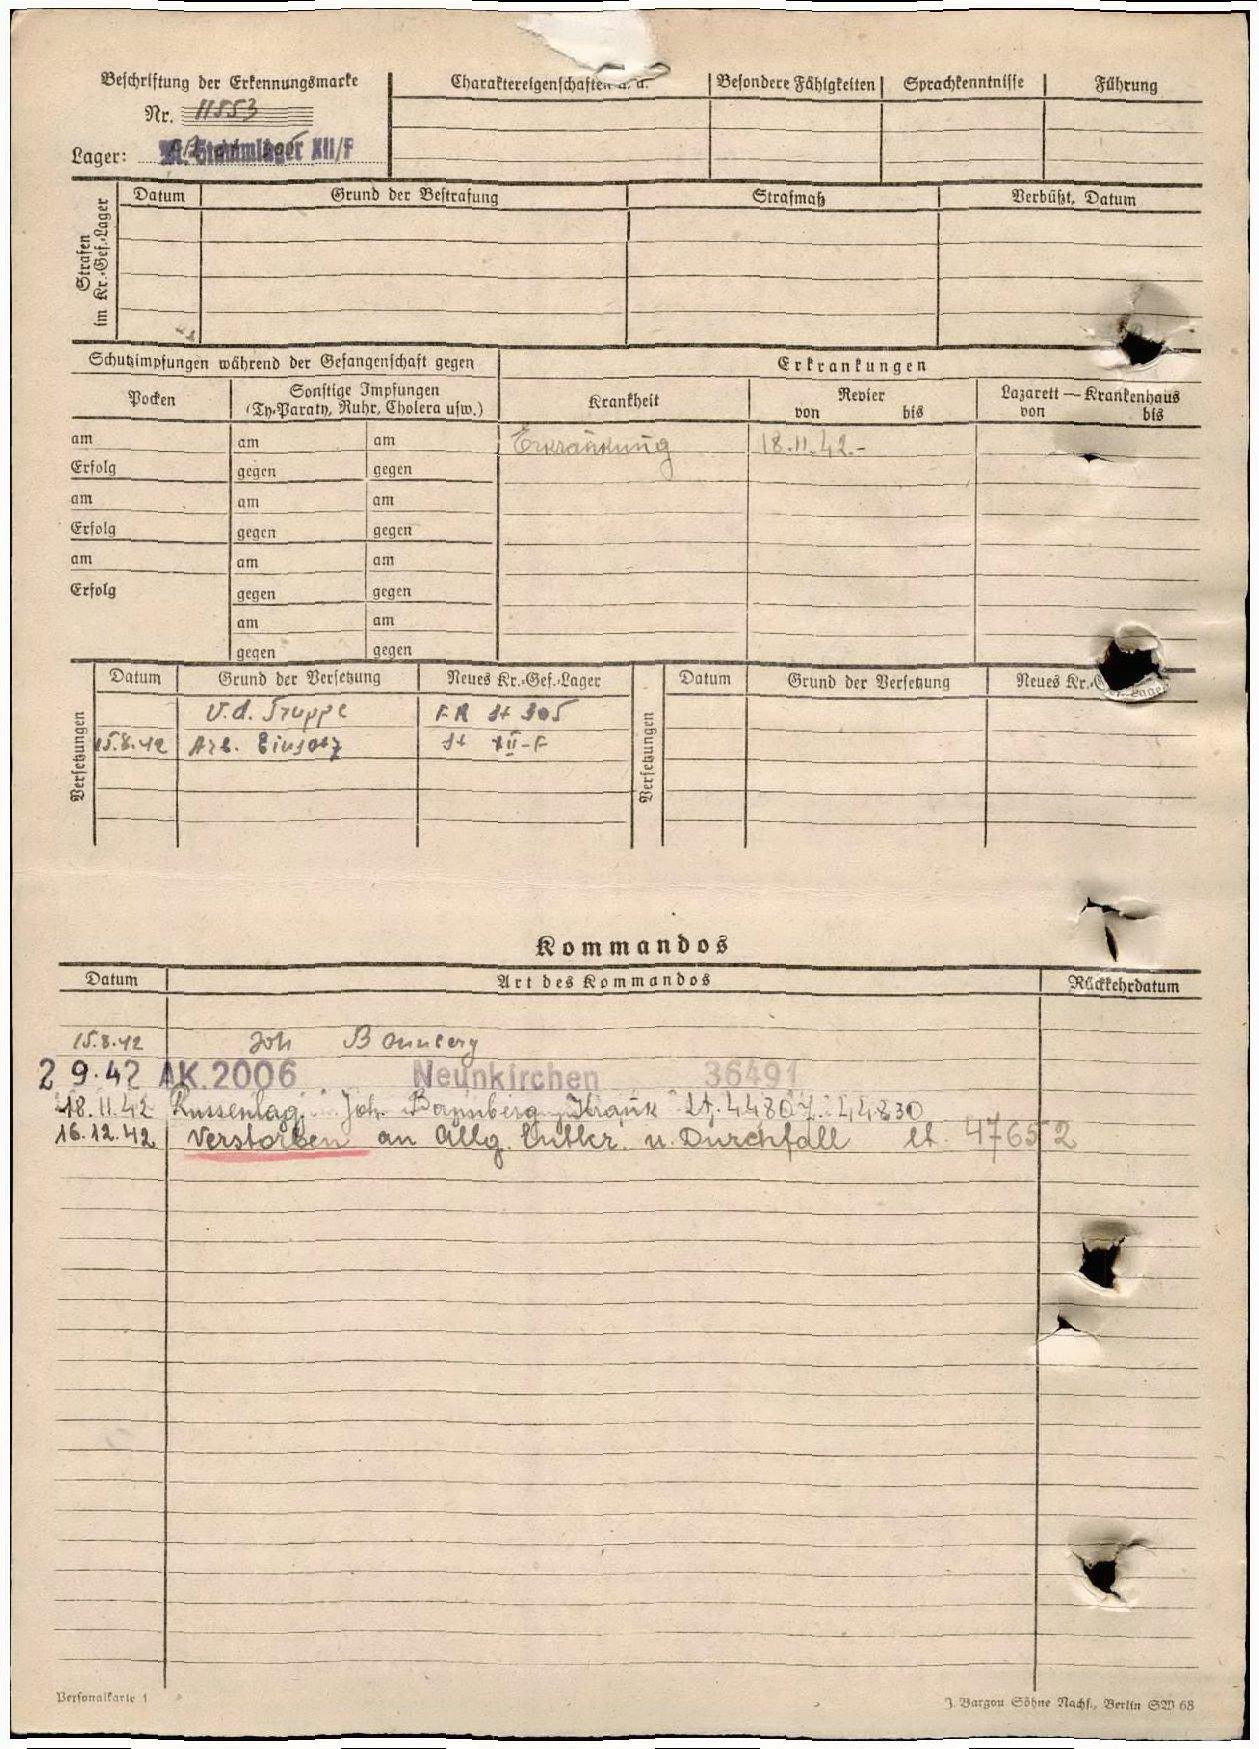 Beschriftung der Erkennungsmarke
Nr. 11553
Lager: M. Stammlager XII/F
Charaktereigenschaften u. a. Besondere Fähigkeiten Sprachkenntnisse Führung
Strafen im Kr.-Gef.-Lager
Datum Grund der Bestrafung Strafmaß Verbüßt, Datum
Schutzimpfungen während der Gefangenschaft gegen Erkrankungen
Pocken Sonstige Impfungen (Ty.-Paraty, Ruhr, Cholera usw.) Krankheit Revier von bis Lazarett — Krankenhaus von bis
am am am Erkrankung 18.11.42.-
Erfolg gegen gegen
am am am
Erfolg gegen gegen
am am am
Erfolg gegen gegen
am am
gegen gegen
Versetzungen
Datum Grund der Versetzung Neues Kr.-Gef.-Lager
V.d. Truppe
15.8.42 Arb. Einsatz St XII-F
Versetzungen
Datum Grund der Versetzung Neues Kr.-Gef.-Lager
Kommandos
Datum Art des Kommandos Rückkehrdatum
15.8.42 Joh Bannberg
2 9.42 AK. 2006 Neunkirchen 36491
18.11.42 Russenlag. Joh. Bannberg Krank Lt. 44807. 44830
16.12.42 Verstorben an Allg. Entkr. u. Durchfall lt. 47652
Personalkarte 1
J. Bargou Söhne Nachf., Berlin SW 68